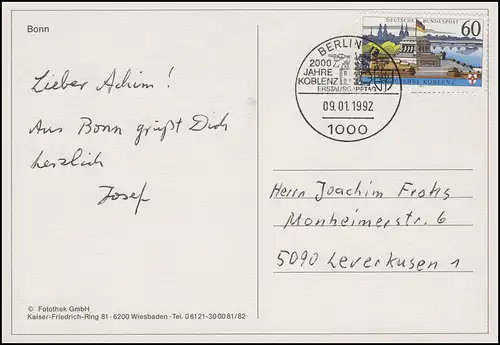 Bonn
Lieber Achim!
Aus Bonn grüßt Dich
herzlich
Josef
© Fotothek GmbH
Kaiser-Friedrich-Ring 81 · 6200 Wiesbaden · Tel. 06121-300081/82
DEUTSCHE BUNDESPOST
60
JAHRE KOBLENZ
BERLIN
2000
JAHRE
KOBLENZ
ERSTAUSGABETAG
09.01.1992
1000
Herrn Joachim Frohs
Monheimerstr. 6
5090 Leverkusen 1